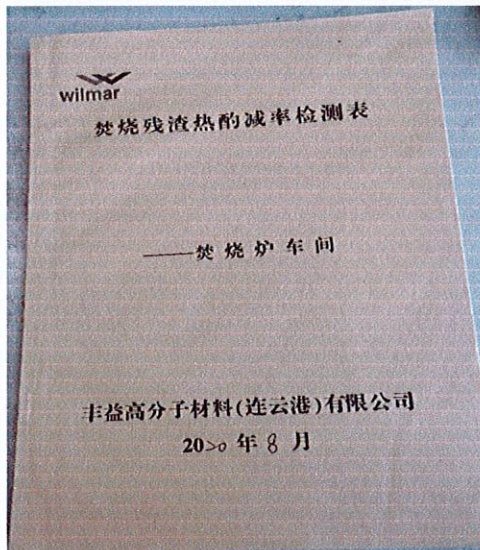 wilmar
焚烧残渣热酌减率检测表
——焚烧炉车间
丰益高分子材料(连云港)有限公司
2020 年 8 月